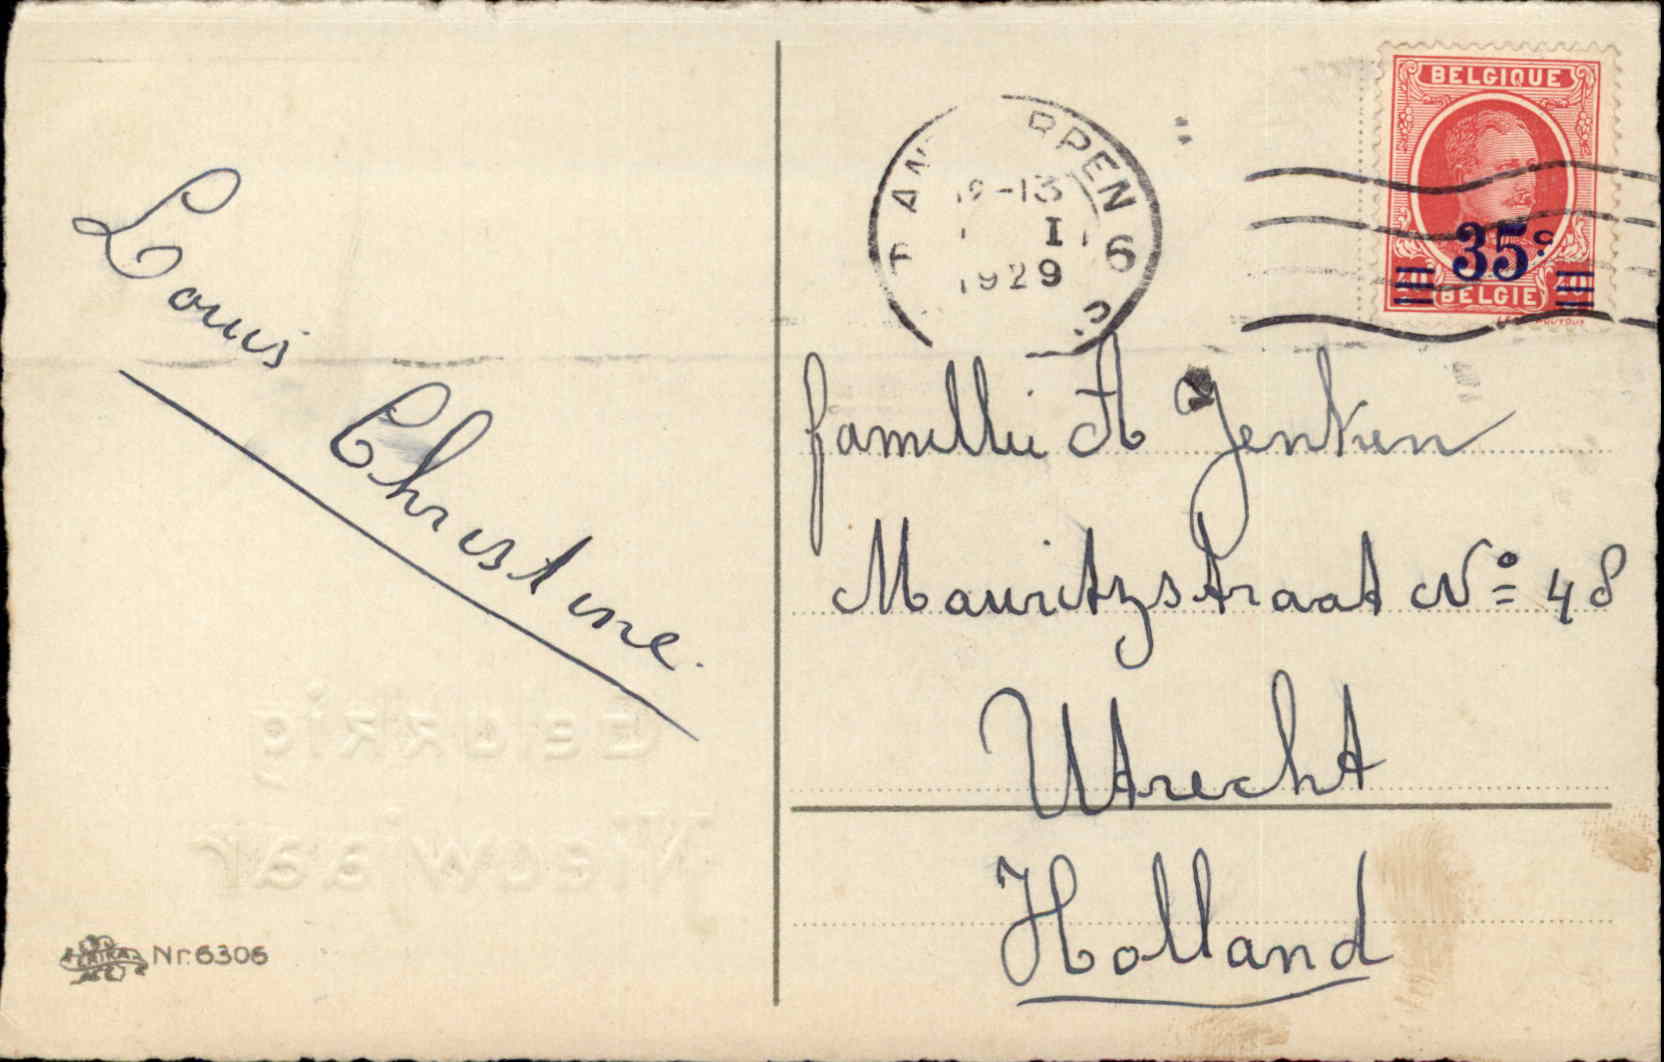 Louis
Christine.
Gelukkig
Nieuwjaar
ERIKA Nr. 6306
ANTWERPEN 6
12-13
I
1929
BELGIQUE
35c.
BELGIE
famillie A Jenken
Mauritzstraat No 48
Utrecht
Holland